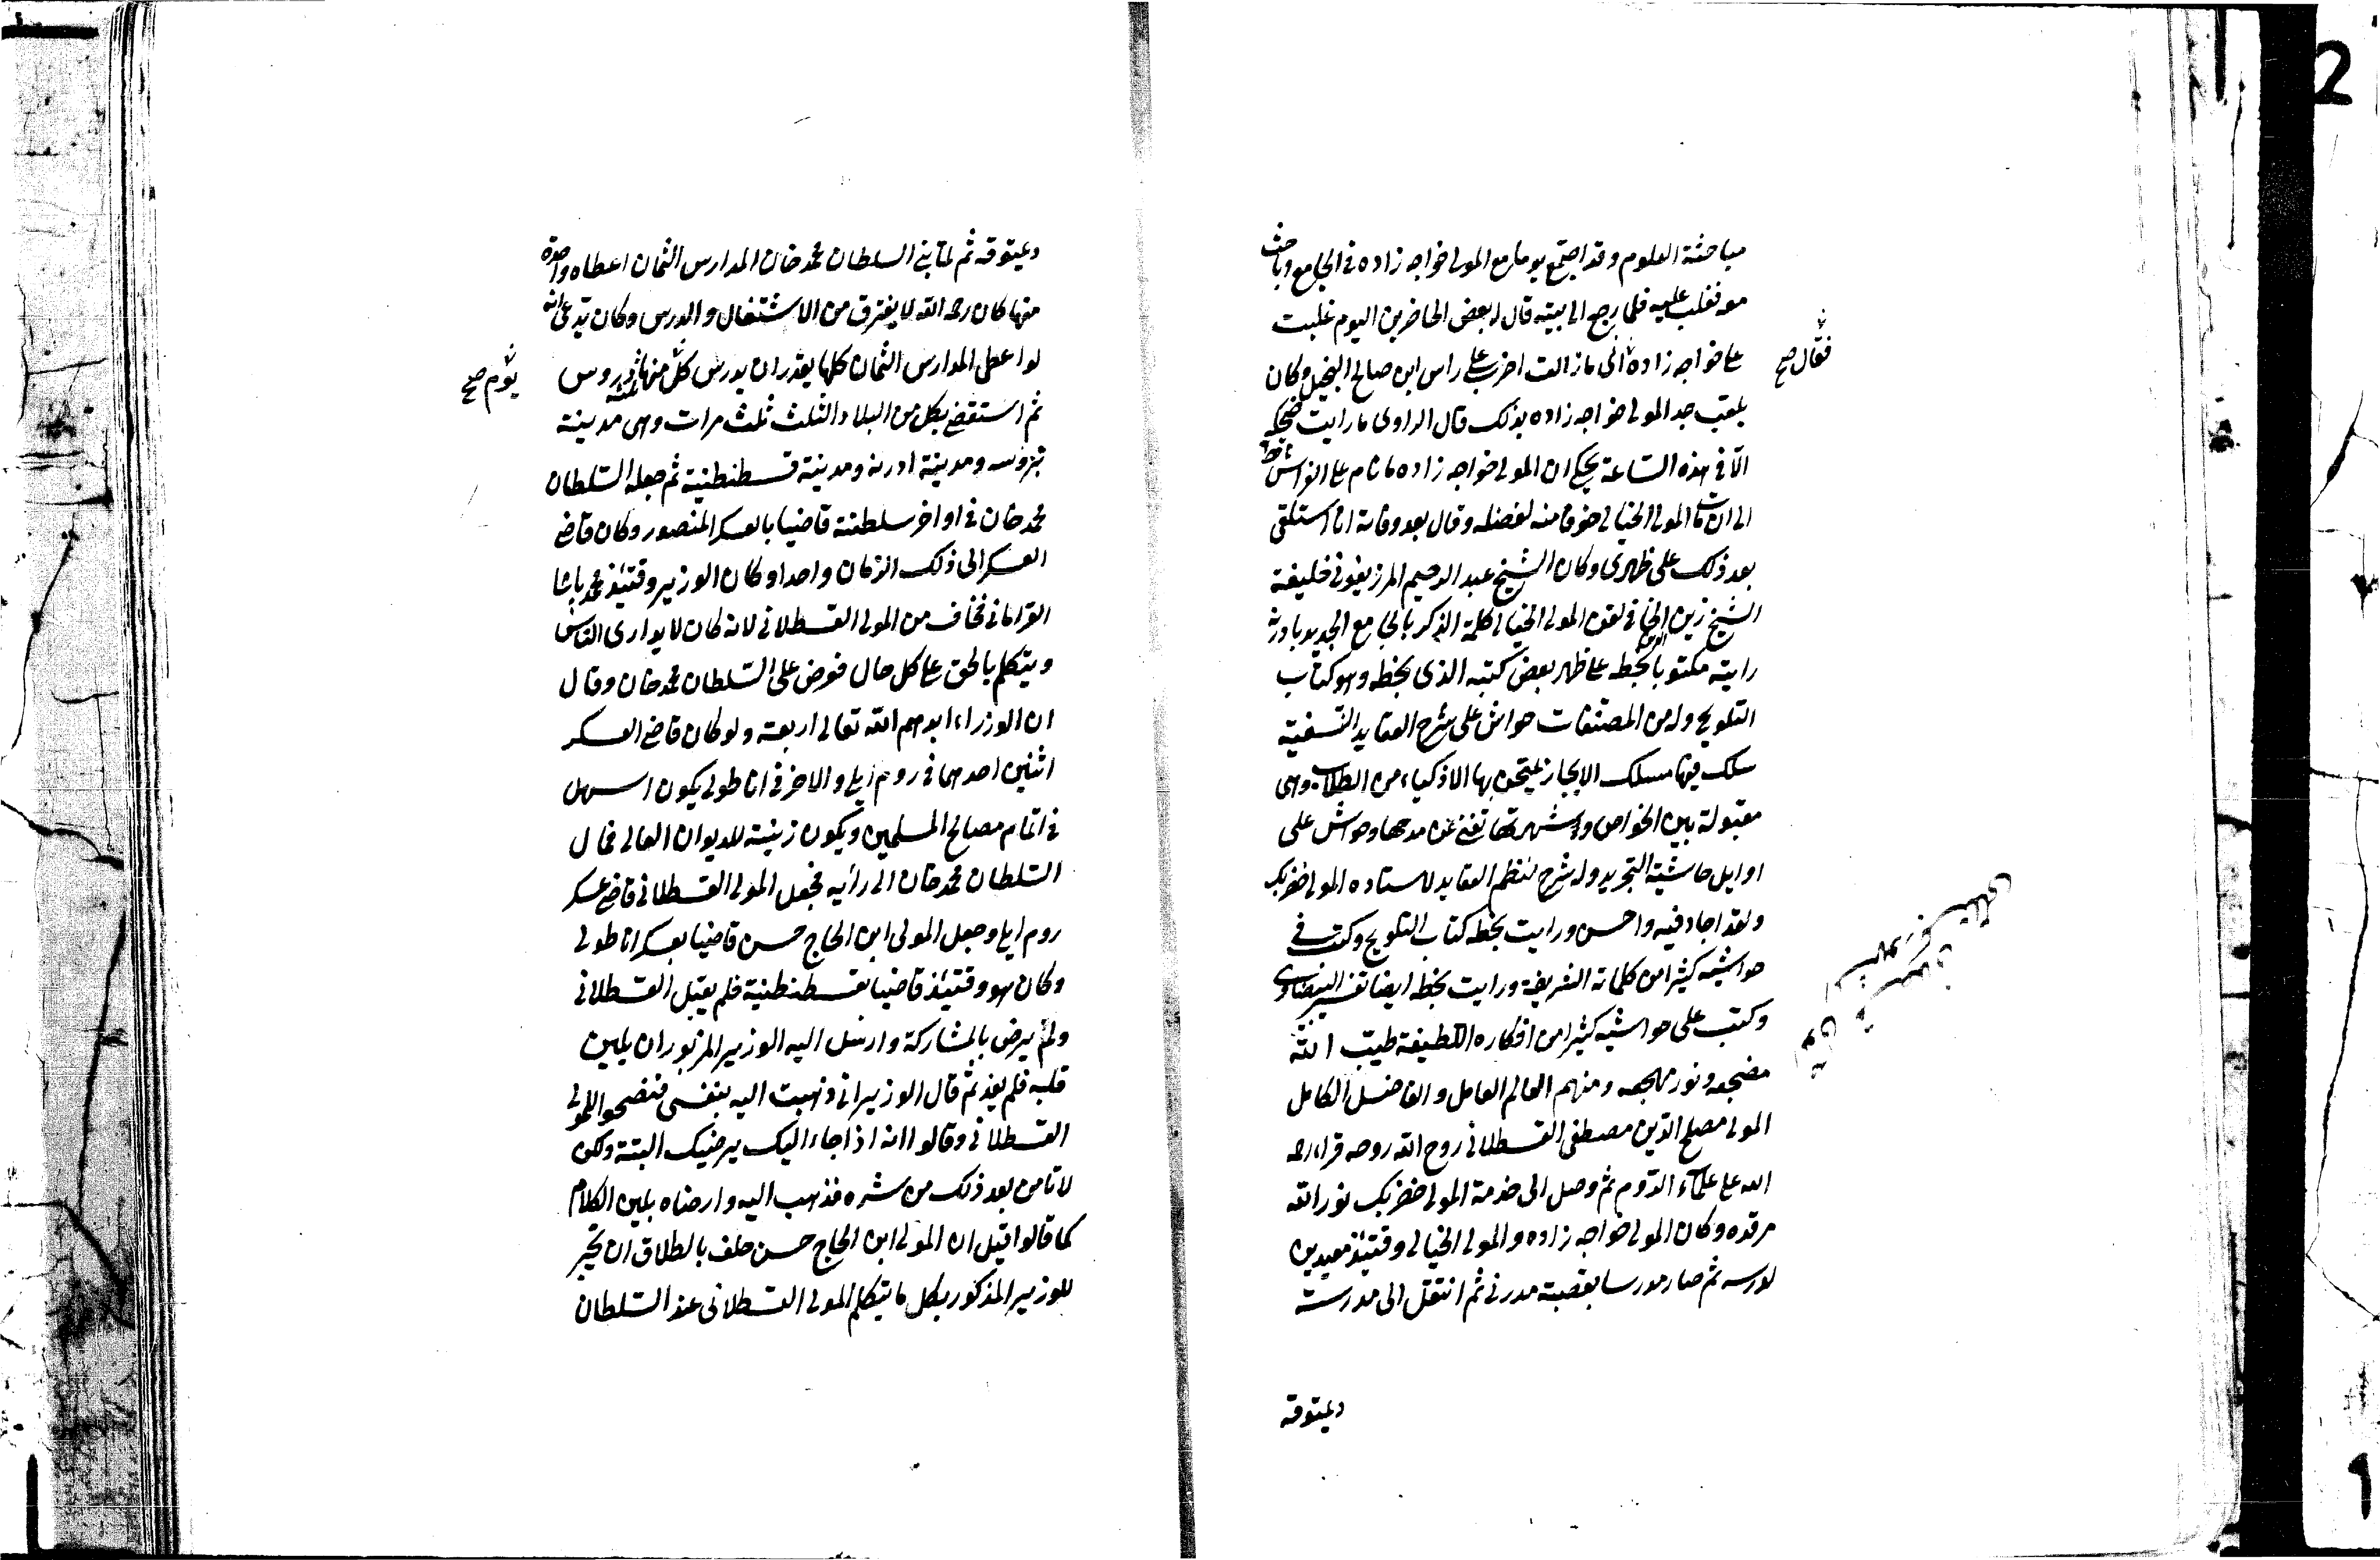 مباحثة العلوم وقد اجتمع يوما مع المولى خواجه زاده فى الجامع وباحث
معه فغلب عليه فلما رجع الى بيته قال لبعض الحاضرين اليوم غلبت
على خواجه زاده انى مازالت اضرب على راس ابن صالح البخيل وكان
فقال صح
يلقب جد المولى خواجه زاده بذلك قال الراوى ما رايت ضحكه
الّا فى هذه الساعة يحكى ان المولى خواجه زاده ما نام على الفراش
الى ان مات المولى الخيالى خوفا منه لفضله وقال بعد وفاته انا استلقى
بعد ذلك على ظهرى وكان الشيخ عبد الرحيم المرزيفونى خليفة
الشيخ زين الخافى لقن المولى الخيالى كلمة الذكر بالجامع الجديد بادرنه
رايته مكتوبا بخطه على ظهر بعض كتبه الذى بخطه وهو كتاب
التلويح وله من المصنفات حواش على شرح العقايد النسفية
سلك فيها مسلك الايجاز يمتحن بها الاذكياء من الطلاب وهى
مقبولة بين الخواص وشهرتها تغنى عن مدحها وحواش على
اوايل حاشية التجريد وله شرح لنظم العقايد لاستاده المولى خضربك
ولقد اجاد فيه واحسن ورايت بخطه كتاب التلويح وكتب فى
حواشيه كثيرا من كلماته الشريفة ورايت بخطه ايضا تفسير البيضاوى
وكتب على حواشيه كثيرا من افكاره اللطيفة طيب الله
مضجعه ونور مهجعه ومنهم العالم العامل والفاضل الكامل
المولى مصلح الدين مصطفى القسطلانى روح الله روحه قراء رحمه
الله على علماء الروم ثم وصل الى خدمة المولى خضربك نور الله
مرقده وكان المولى خواجه زاده والمولى الخيالى وقتئذ معيدين
لدرسه ثم صار مدرسا بقصبة مدرنى ثم انتقل الى مدرسة
ديمتوقه
ديمتوقه ثم لما بنى السلطان محمد خان المدارس الثمان اعطاه واحدة
منها كان رحمه الله لا يفترق من الاشتغال والدرس وكان يدعى انه
لو اعطى المدارس الثمان كلها يقدر ان يدرس كل منها ثلثة دروس
يوم صح
ثم استقضى بكل من البلاد الثلث ثلث مرات وهى مدينة
بروسه ومدينة ادرنه ومدينة قسطنطنية ثم جعله السلطان
محمد خان فى اواخر سلطنته قاضيا بالعسكر المنصور وكان قاضى
العسكر الى ذلك الزمان واحدا وكان الوزير وقتئذ محمد باشا
القرامانى فخاف من المولى القسطلانى لانه كان لا يدارى الناس
ويتكلم بالحق على كل حال فعرض على السلطان محمد خان وقال
ان الوزراء ايدهم الله تعالى اربعة ولو كان قاضى العسكر
اثنين احدهما فى روم ايلى والاخر فى اناطولى يكون اسهل
فى اتمام مصالح المسلمين ويكون زينة للديوان العالى فمال
السلطان محمد خان الى رأيه فجعل المولى القسطلانى قاضى عسكر
روم ايلى وجعل المولى ابن الحاج حسن قاضيا بعسكر اناطولى
وكان هو وقتئذ قاضيا بقسطنطنية فلم يقبل القسطلانى
ولم يرض بالمشاركة وارسل اليه الوزير المزبور ان يلين
قلبه فلم يفد ثم قال الوزير انى ذهبت اليه بنفسى فنصحوا للمولى
القسطلانى وقالوا انه اذا جاء اليك يرضيك البتة ولكن
لا تامن بعد ذلك من شره فذهب اليه وارضاه بلين الكلام
كما قالوا قيل ان المولى ابن الحاج حسن حلف بالطلاق ان يخبر
للوزير المذكور بكل ما يتكلم المولى القسطلانى عند السلطان
2